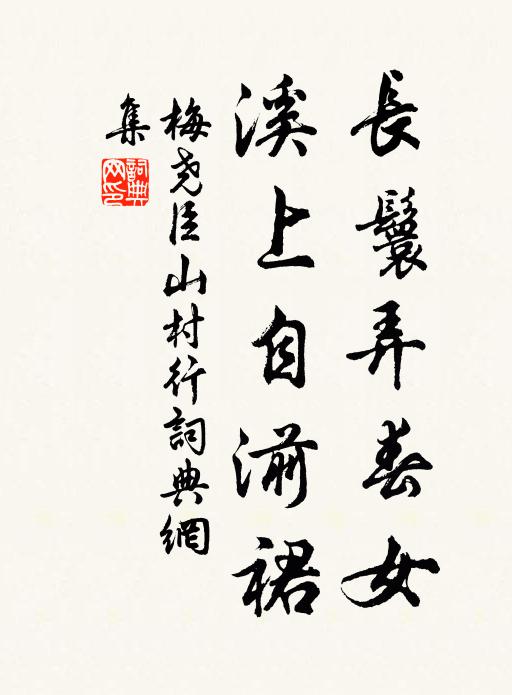 長鬟弄春女
溪上自湔裙
梅堯臣山村行詞典網
集
詞典网印